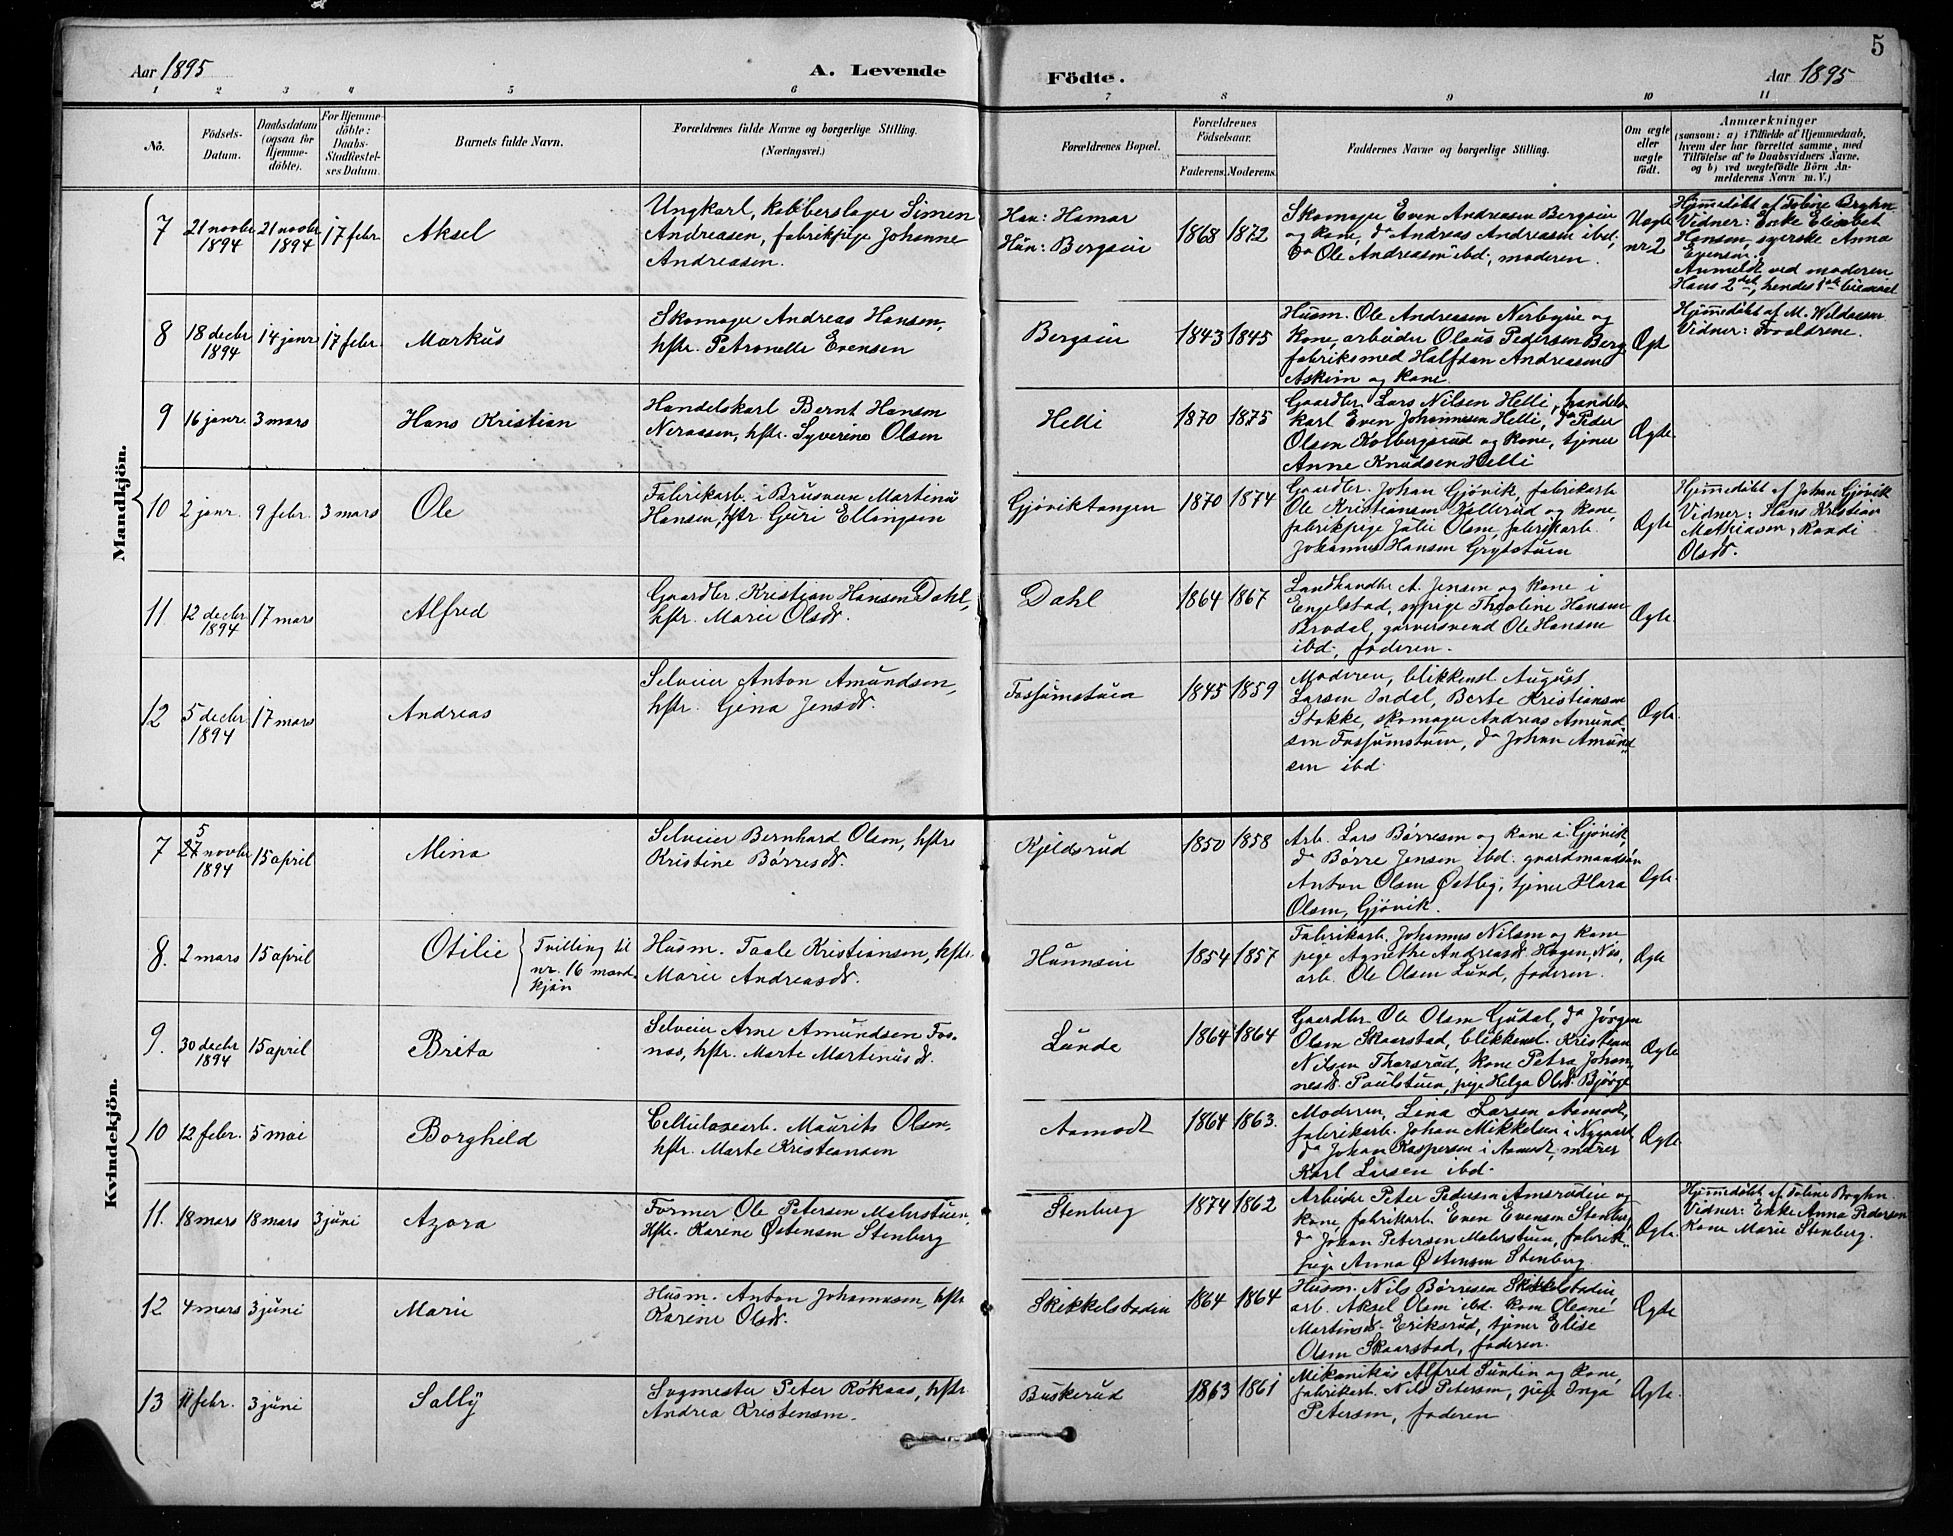 5
Aar 1895
A. Levende
Födte.
Aar 1895
1 2 3 4 5 6 7 8 9 10 11
No.
Födsels-
Datum.
Daabsdatum
(ogsaa for
Hjemme-
döbte).
For Hjemme-
döbte:
Daabs-
Stadfæstel-
ses Datum.
Barnets fulde Navn.
Forældrenes fulde Navne og borgerlige Stilling.
(Næringsvei.)
Forældrenes Bopæl.
Forældrenes
Födselsaar.
Faderens. Moderens.
Faddernes Navne og borgerlige Stilling.
Om ægte
eller
uægte
født.
Anmærkninger
(saasom: a) i Tilfælde af Hjemmedaab,
hvem der har forrettet samme, med
Tilføielse af to Daabsvidners Navne,
og b) ved uægtefödte Börn An-
melderens Navn m. V.)
Mandkjön.
7
21 novbr
1894
21 novbr
1894
17 febr.
Aksel
Ungkarl, kobberslager Simen
Andreasen, fabrikpige Johanne
Andreasen.
Han: Hamar
Hun: Bergseie
1868 1872
Skomager Even Andreasen Bergseie
og kone, do Andreas Andreasen ibd.,
do Ole Andreasen ibd., moderen.
Uægte
nr 2
Hjemmedøbt af Toline Boghn
Vidner: Enke Elisabet
Hansen, syerske Anna
Evensen.
Anmeldt ved moderen
Hans 2det, hendes 1ste
8
18 decbr
1894
14 janr
17 febr.
Markus
Skomager Andreas Hansen,
hstr. Petronelle Evensen
Bergseie
1843 1845
Husm. Ole Andreasen Nerbyeie og
kone, arbeider Olaus Pedersen Berg,
fabriksmed Halfdan Andreasen
Askim og kone.
Ægte
Hjemmedøbt af M. Wildaasen
Vidner: Forældrene.
9
16 janr.
3 mars
Hans Kristian
Handelskarl Bernt Hansen
Neraasen, hstr. Syverine Olsen
Helli
1870 1875
Gaardbr. Lars Nilsen Helli, handels
karl Even Johannesen Helli, do Peder
Olsen Kolbergsrud og kone, tjener
Anne Knudsen Helli
Ægte.
10
2 janr.
9 febr.
3 mars
Ole
Fabrikarb. i Brusveen Martinus
Hansen, hstr. Guri Ellingsen
Gjøviktangen
1870 1874
Gaardbr. Johan Gjøvik, fabrikarb.
Ole Kristiansen Kallerud og kone,
fabrikpige Julie Olsen, fabrikarb.
Johannes Hansen Grytstuen
Ægte
Hjemmedøbt af Johan Gjøvik
Vidner: Hans Kristian
Mathiasen, Randi
Olsdt.
11
12 decbr
1894
17 mars
Alfred
Gaardbr. Kristian Hansen Dahl,
hstr. Marie Olsdt.
Dahl
1864 1867
Landhandler A. Jensen og kone i
Engelstad, sypige Theoline Hansen
Brodal, garversvend Ole Hansen
ibd., faderen.
Ægte.
12
5 decbr
1894
17 mars
Andreas
Selveier Anton Amundsen,
hstr. Gina Jensdt.
Fossumstuen
1845 1859
Moderen, blikkensl. August
Larsen Indal, Berte Kristiansen
Stokke, skomager Andreas Amund
sen Fossumstuen, do Johan Amund-
sen ibd.
Ægte.
Kvindekjön.
7
5
27 novbr
1894
15 april
Mina
Selveier Bernhard Olsen, hstr.
Kristine Børresdt.
Kjeldsrud
1850 1858
Arb. Lars Børresen og kone i Gjøvik,
do Børre Jensen ibd. gaardmandsøn
Anton Olsen Østby, tjener Klara
Olsen, Gjøvik.
Ægte.
8.
2 mars
15 april
Otilie
Tvilling til
nr. 16 mand
kjøn
Husm. Taale Kristiansen, hstr.
Marie Andreasdt.
Hunnseie
1854 1857
Fabrikarb. Johannes Nilsen og kone
pige Agnethe Andreasdt. Hagen, Næs,
arb. Ole Olsen Lund, faderen.
Ægte
9.
30 decbr
1894
15 april
Brita
Selveier Arne Amundsen Fos-
næs, hstr. Marte Martinusdt.
Lunde
1864 1864
Gaardbr. Ole Olsen Gudal, do Jørgen
Olsen Skaarstad, blikkensl. Kristian
Nilsen Thorsrud, kone Petra Johan-
nesdt. Paulstuen, pige Helga Olsdt. Bjørge
Ægte
10
12 febr.
5 mai
Borghild
Cellulosearb. Maurits Olsen,
hstr. Marte Kristiansen
Aamodt
1864 1863.
Moderen, Lina Larsen Aamodt,
fabrikarb. Johan Mikkelsen i Nygaard,
do Johan Kaspersen i Aamodt, murer
Karl Larsen ibd.
Ægte.
11.
18 mars
18 mars
3 juni
Azora
Former Ole Petersen Malerstuen,
hstr. Karine Østensen Stenberg
Stenberg
1874 1862
Arbeider Peter Pedersen Amsrudeie og
kone, fabrikarb. Even Evensen Stenberg
do Johan Petersen Malerstuen, fabrik-
pige Anna Østensen Stenberg
Ægte.
Hjemmedøbt af Toline Boghn
Vidner: Enke Anna Pedersen
Kone Marie Stenberg.
12
4 mars
3 juni
Marie
Husm. Anton Johannesen, hstr.
Karine Olsdt.
Skikkelstadeie
1864 1864
Husm. Nils Børresen Skikkelstadeie,
arb. Aksel Olsen ibd. kone Oleane
Martinsdt. Eriksrud, tjener Elise
Olsen Skaarstad, faderen.
Ægte
13
11 febr.
3 juni
Sally
Sagmester Peter Røkaas, hstr.
Andrea Kristensen.
Buskerud
1863 1861
Mekanikus Alfred Sundin og kone,
fabrikarb. Nils Petersen, pige Inga
Petersen, faderen
Ægte.